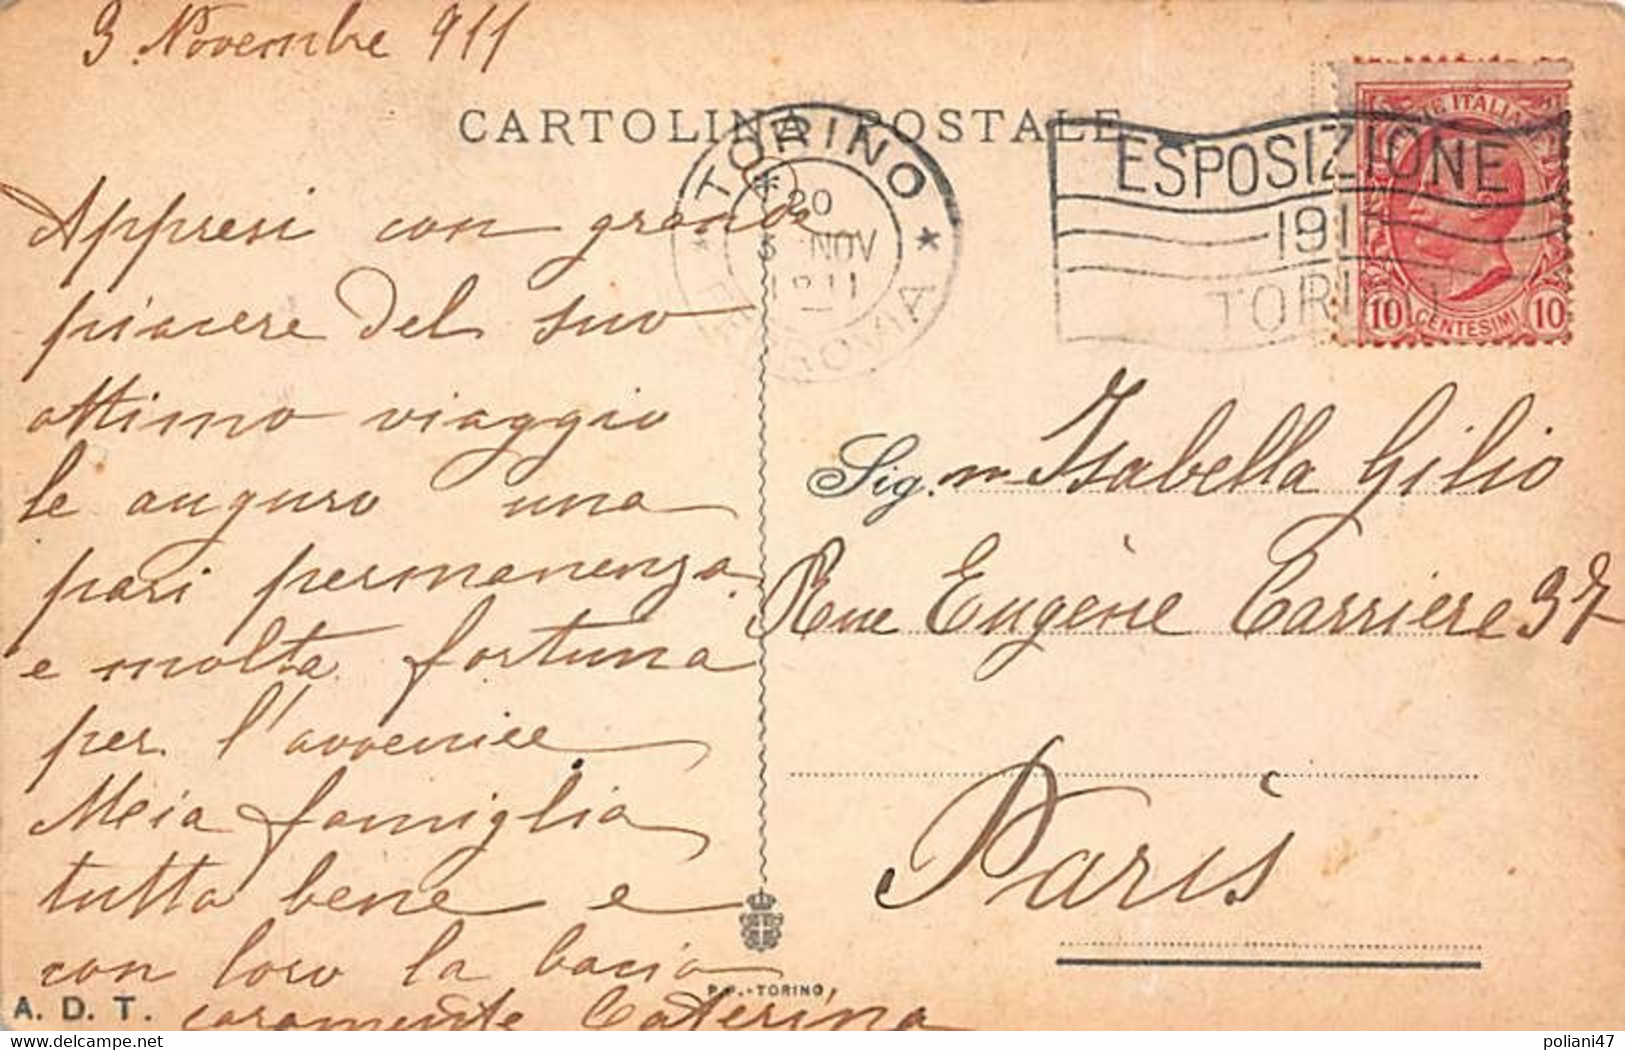 3 Novembre 911
CARTOLINA POSTALE
TORINO
FERROVIA
20
3 NOV
1911
ESPOSIZIONE
1911
TORINO
POSTE ITALIANE
10 CENTESIMI 10
Appresi con grande
piacere del suo
ottimo viaggio
le auguro una
pari permanenza
e molta fortuna
per l'avvenire
Meia famiglia
tutta bene e
con loro la bacio
caramente Caterina
Sig.na Isabella Gilio
Rue Eugène Carriere 37
Paris
P.P. - TORINO
A. D. T.
poliani47